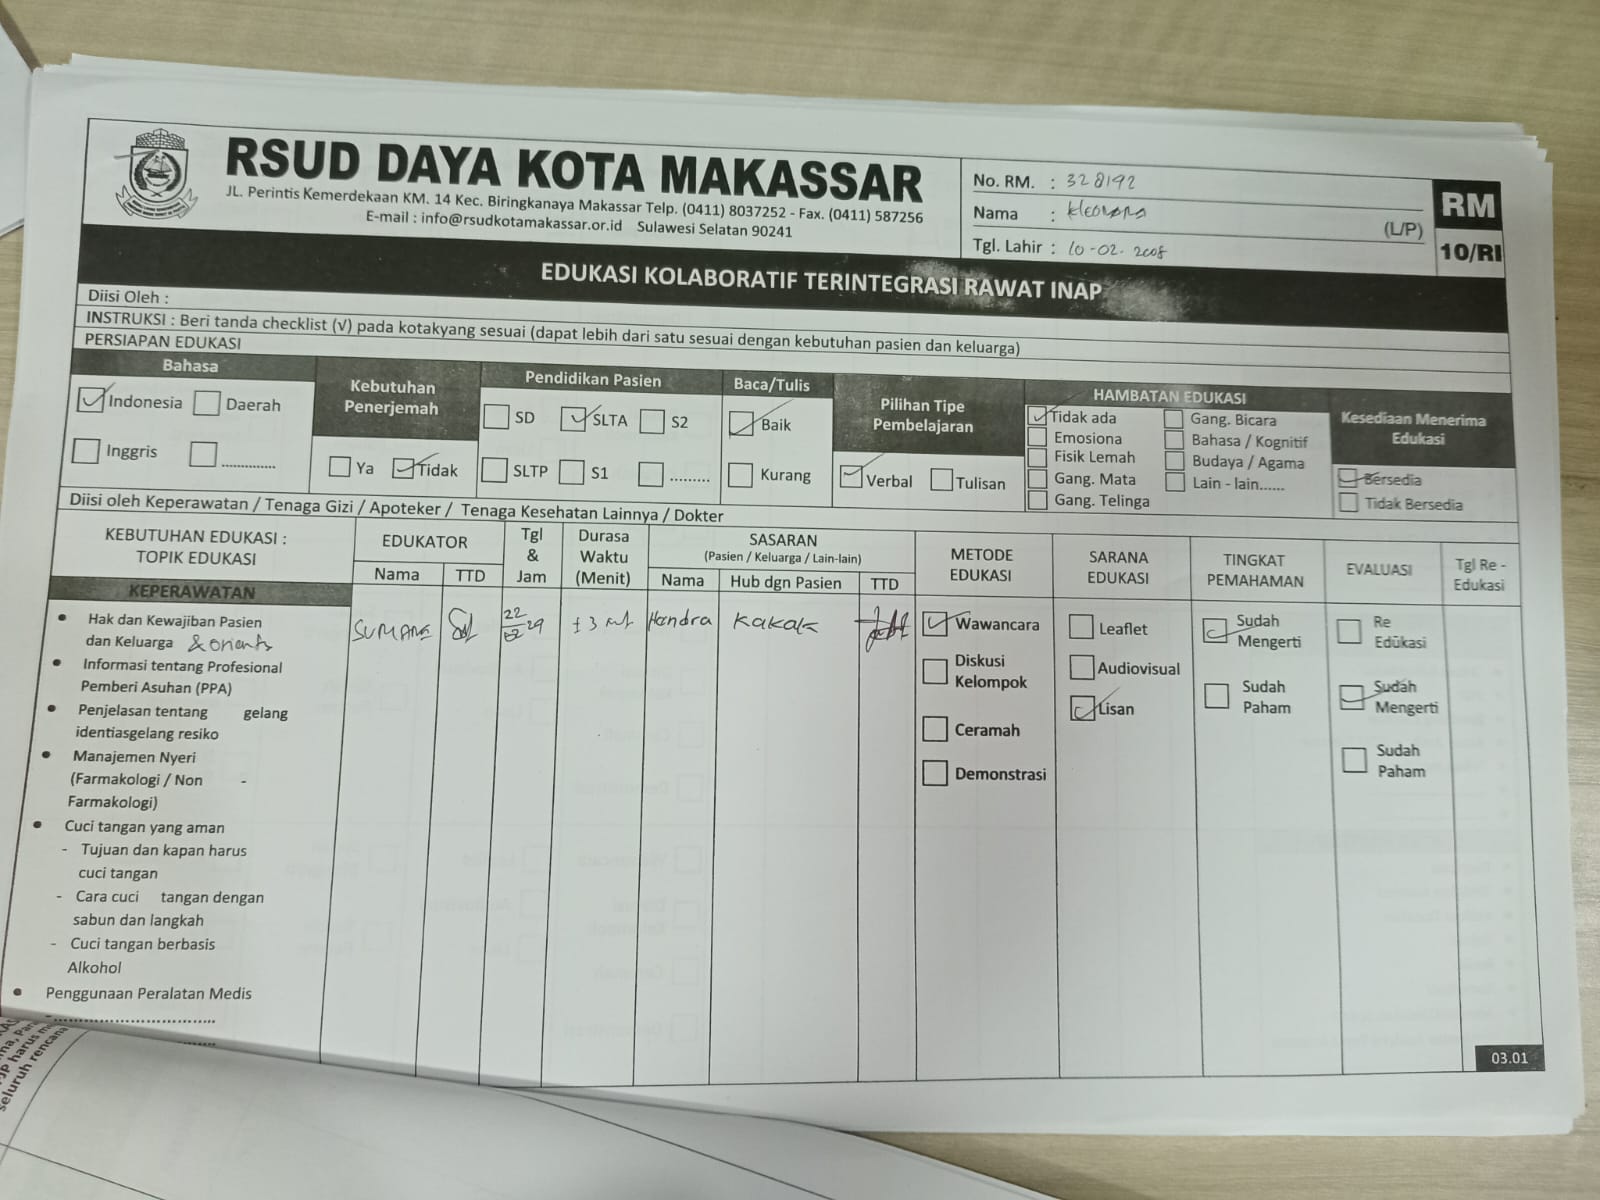 RSUD DAYA KOTA MAKASSAR
JL. Perintis Kemerdekaan KM. 14 Kec. Biringkanaya Makassar Telp. (0411) 8037252 - Fax. (0411) 587256
E-mail : info@rsudkotamakassar.or.id Sulawesi Selatan 90241
No. RM. : 328192
Nama :
(L/P)
Tgl. Lahir : 10-02-2008
RM
10/RI
EDUKASI KOLABORATIF TERINTEGRASI RAWAT INAP
Diisi Oleh :
INSTRUKSI : Beri tanda checklist (√) pada kotakyang sesuai (dapat lebih dari satu sesuai dengan kebutuhan pasien dan keluarga)
PERSIAPAN EDUKASI
Bahasa
Indonesia Daerah
Inggris .............
Kebutuhan
Penerjemah
Ya Tidak
Pendidikan Pasien
SD SLTA S2
SLTP S1 .........
Baca/Tulis
Baik
Kurang
Pilihan Tipe
Pembelajaran
Verbal Tulisan
HAMBATAN EDUKASI
Tidak ada Gang. Bicara
Emosiona Bahasa / Kognitif
Fisik Lemah Budaya / Agama
Gang. Mata Lain - lain......
Gang. Telinga
Kesediaan Menerima
Edukasi
Bersedia
Tidak Bersedia
Diisi oleh Keperawatan / Tenaga Gizi / Apoteker / Tenaga Kesehatan Lainnya / Dokter
KEBUTUHAN EDUKASI :
TOPIK EDUKASI
EDUKATOR
Nama TTD
Tgl
&
Jam
Durasa
Waktu
(Menit)
SASARAN
(Pasien / Keluarga / Lain-lain)
Nama Hub dgn Pasien TTD
METODE
EDUKASI
SARANA
EDUKASI
TINGKAT
PEMAHAMAN
EVALUASI
Tgl Re -
Edukasi
KEPERAWATAN
• Hak dan Kewajiban Pasien
dan Keluarga
• Informasi tentang Profesional
Pemberi Asuhan (PPA)
• Penjelasan tentang gelang
identiasgelang resiko
• Manajemen Nyeri
(Farmakologi / Non -
Farmakologi)
• Cuci tangan yang aman
- Tujuan dan kapan harus
cuci tangan
- Cara cuci tangan dengan
sabun dan langkah
- Cuci tangan berbasis
Alkohol
• Penggunaan Peralatan Medis
- ..............................
Hendra Kakak
Wawancara
Diskusi
Kelompok
Ceramah
Demonstrasi
Leaflet
Audiovisual
Lisan
Sudah
Mengerti
Sudah
Paham
Re
Edukasi
Sudah
Mengerti
Sudah
Paham
03.01